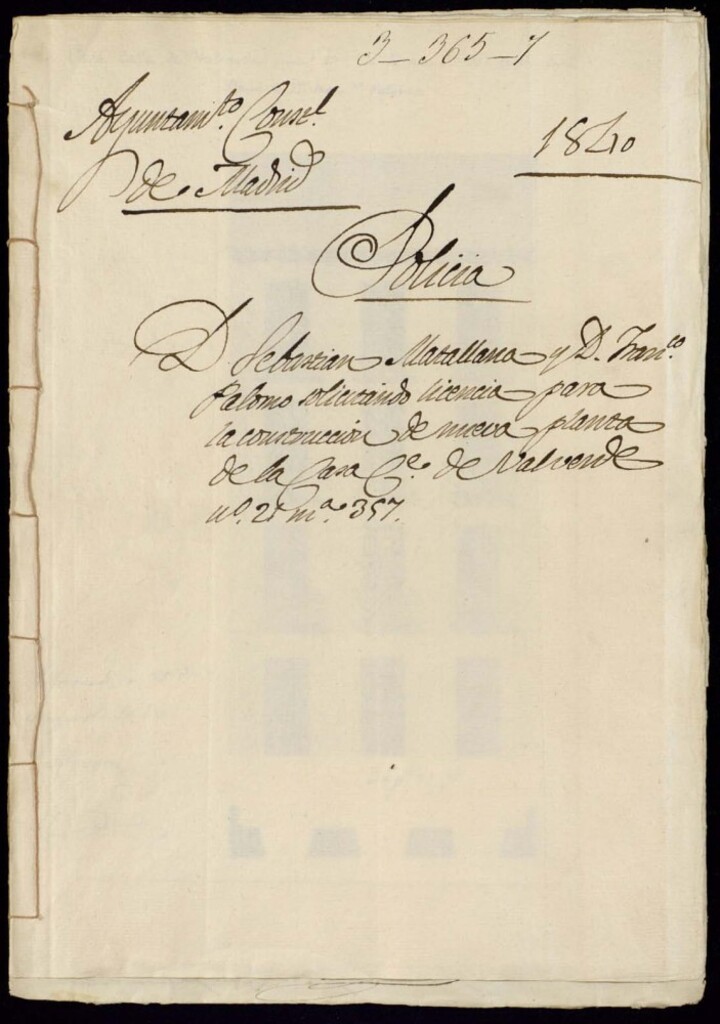 3-365-7
Ayuntam.to Const.l
de Madrid
1840
Policia
D Sebastian Matallana y D. Fran.co
Palomo solicitando licencia para
la construccion de nueva planta
de la Casa C.e de Valverde
n.o 21 m.a 357.